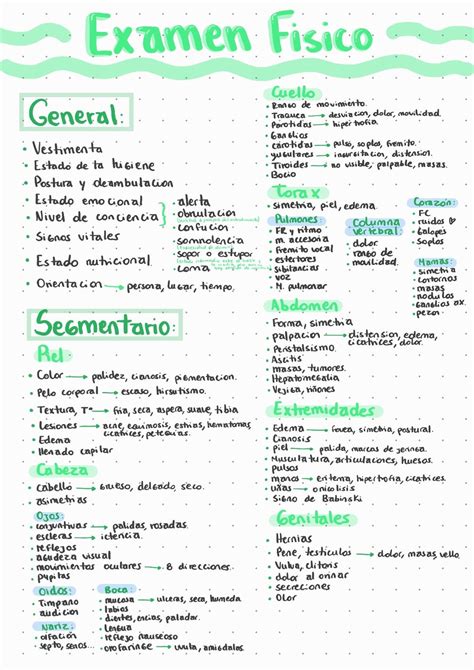 Examen Fisico
General:
• Vestimenta
• Estado de la higiene
• Postura y deambulacion
• Estado emocional
• Nivel de conciencia
• alerta
• obnulacion
• confucion
• somnolencia
• sopor o estupor
• coma
• Signos vitales
• Estado nutricional
• Orientacion → persona, lugar, tiempo.
Segmentario:
Piel:
• Color → palidez, cianosis, pigmentacion.
• Pelo corporal → escaso, hirsutismo.
• Textura, T° → fria, seca, aspera, suave, tibia
• Lesiones → acne, equimosis, estrias, hematomas,
cicatrices, petequias.
• Edema
• llenado capilar
Cabeza
• cabello → grueso, delgado, seco.
• asimetrias
Ojos:
• conjuntivas → palidas, rosadas.
• escleras → ictericia
• reflejos
• agudeza visual
• movimientos oculares → 8 direcciones.
• pupilas
Oidos:
• Timpano
• audicion
Nariz:
• olfacion
• septo, senos
Boca:
• mucosa → ulceras, seca, humeda
• labios
• dientes, encias, paladar.
• lengua
• reflejo nauseoso
• orofaringe → uvula, amigdalas.
Cuello
• Rango de movimiento.
• Traquea → desviacion, dolor, movilidad.
• Parotidas → hipertrofia.
• Ganglios
• carotidas → pulso, soplos, fremito.
• yugulares → ingurgitacion, distension.
• Tiroides → no visible, palpable, masas.
• Bocio
Torax
• simetria, piel, edema.
Pulmones:
• FR y ritmo
• m. accesoria
• Fremito vocal
• estertores
• Sibilancias
• voz
• M. pulmonar
Columna
vertebral:
• dolor
• rango de
movilidad.
Corazón:
• FC
• ruidos
• Galopes
• Soplos
Mamas:
• simetria
• contornos
• masas
• nodulos
• Ganglios ax.
• pezon
Abdomen
• Forma, simetria
• palpacion → distension, edema,
cicatrices, dolor.
• Peristalsismo
• Ascitis
• masas, tumores.
• Hepatomegalia
• Vejiga, riñones
Extremidades
• Edema → fovea, simetria, postural.
• Cianosis
• piel → palida, marcas de jeringa.
• Musculatura, articulaciones, huesos.
• pulsos
• manos → eritema, hipertrofia, cicatrices.
• uñas → onicolisis
• Signo de Babinski
Genitales
• Hernias
• Pene, testiculos → dolor, masas, vello.
• Vulva, clitoris
• dolor al orinar
• secreciones
• Olor